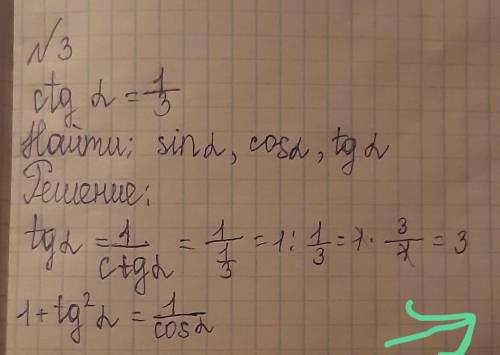 №3
ctg α = 1/3
Найти: sin α, cos α, tg α
Решение:
tg α = 1/ctg α = 1/(1/3) = 1 : 1/3 = 1 · 3/1 = 3
1 + tg² α = 1/cos α